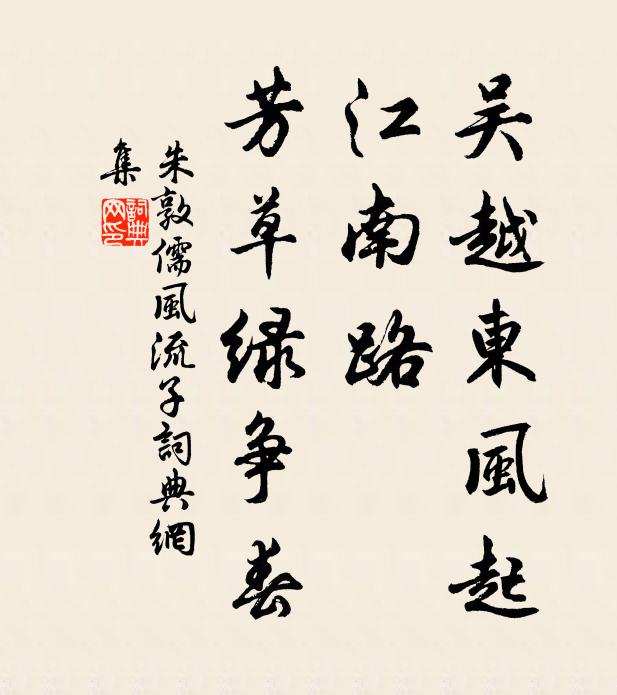 吴越東風起
江南路
芳草绿争春
朱敦儒風流子詞典網
集
詞典網印